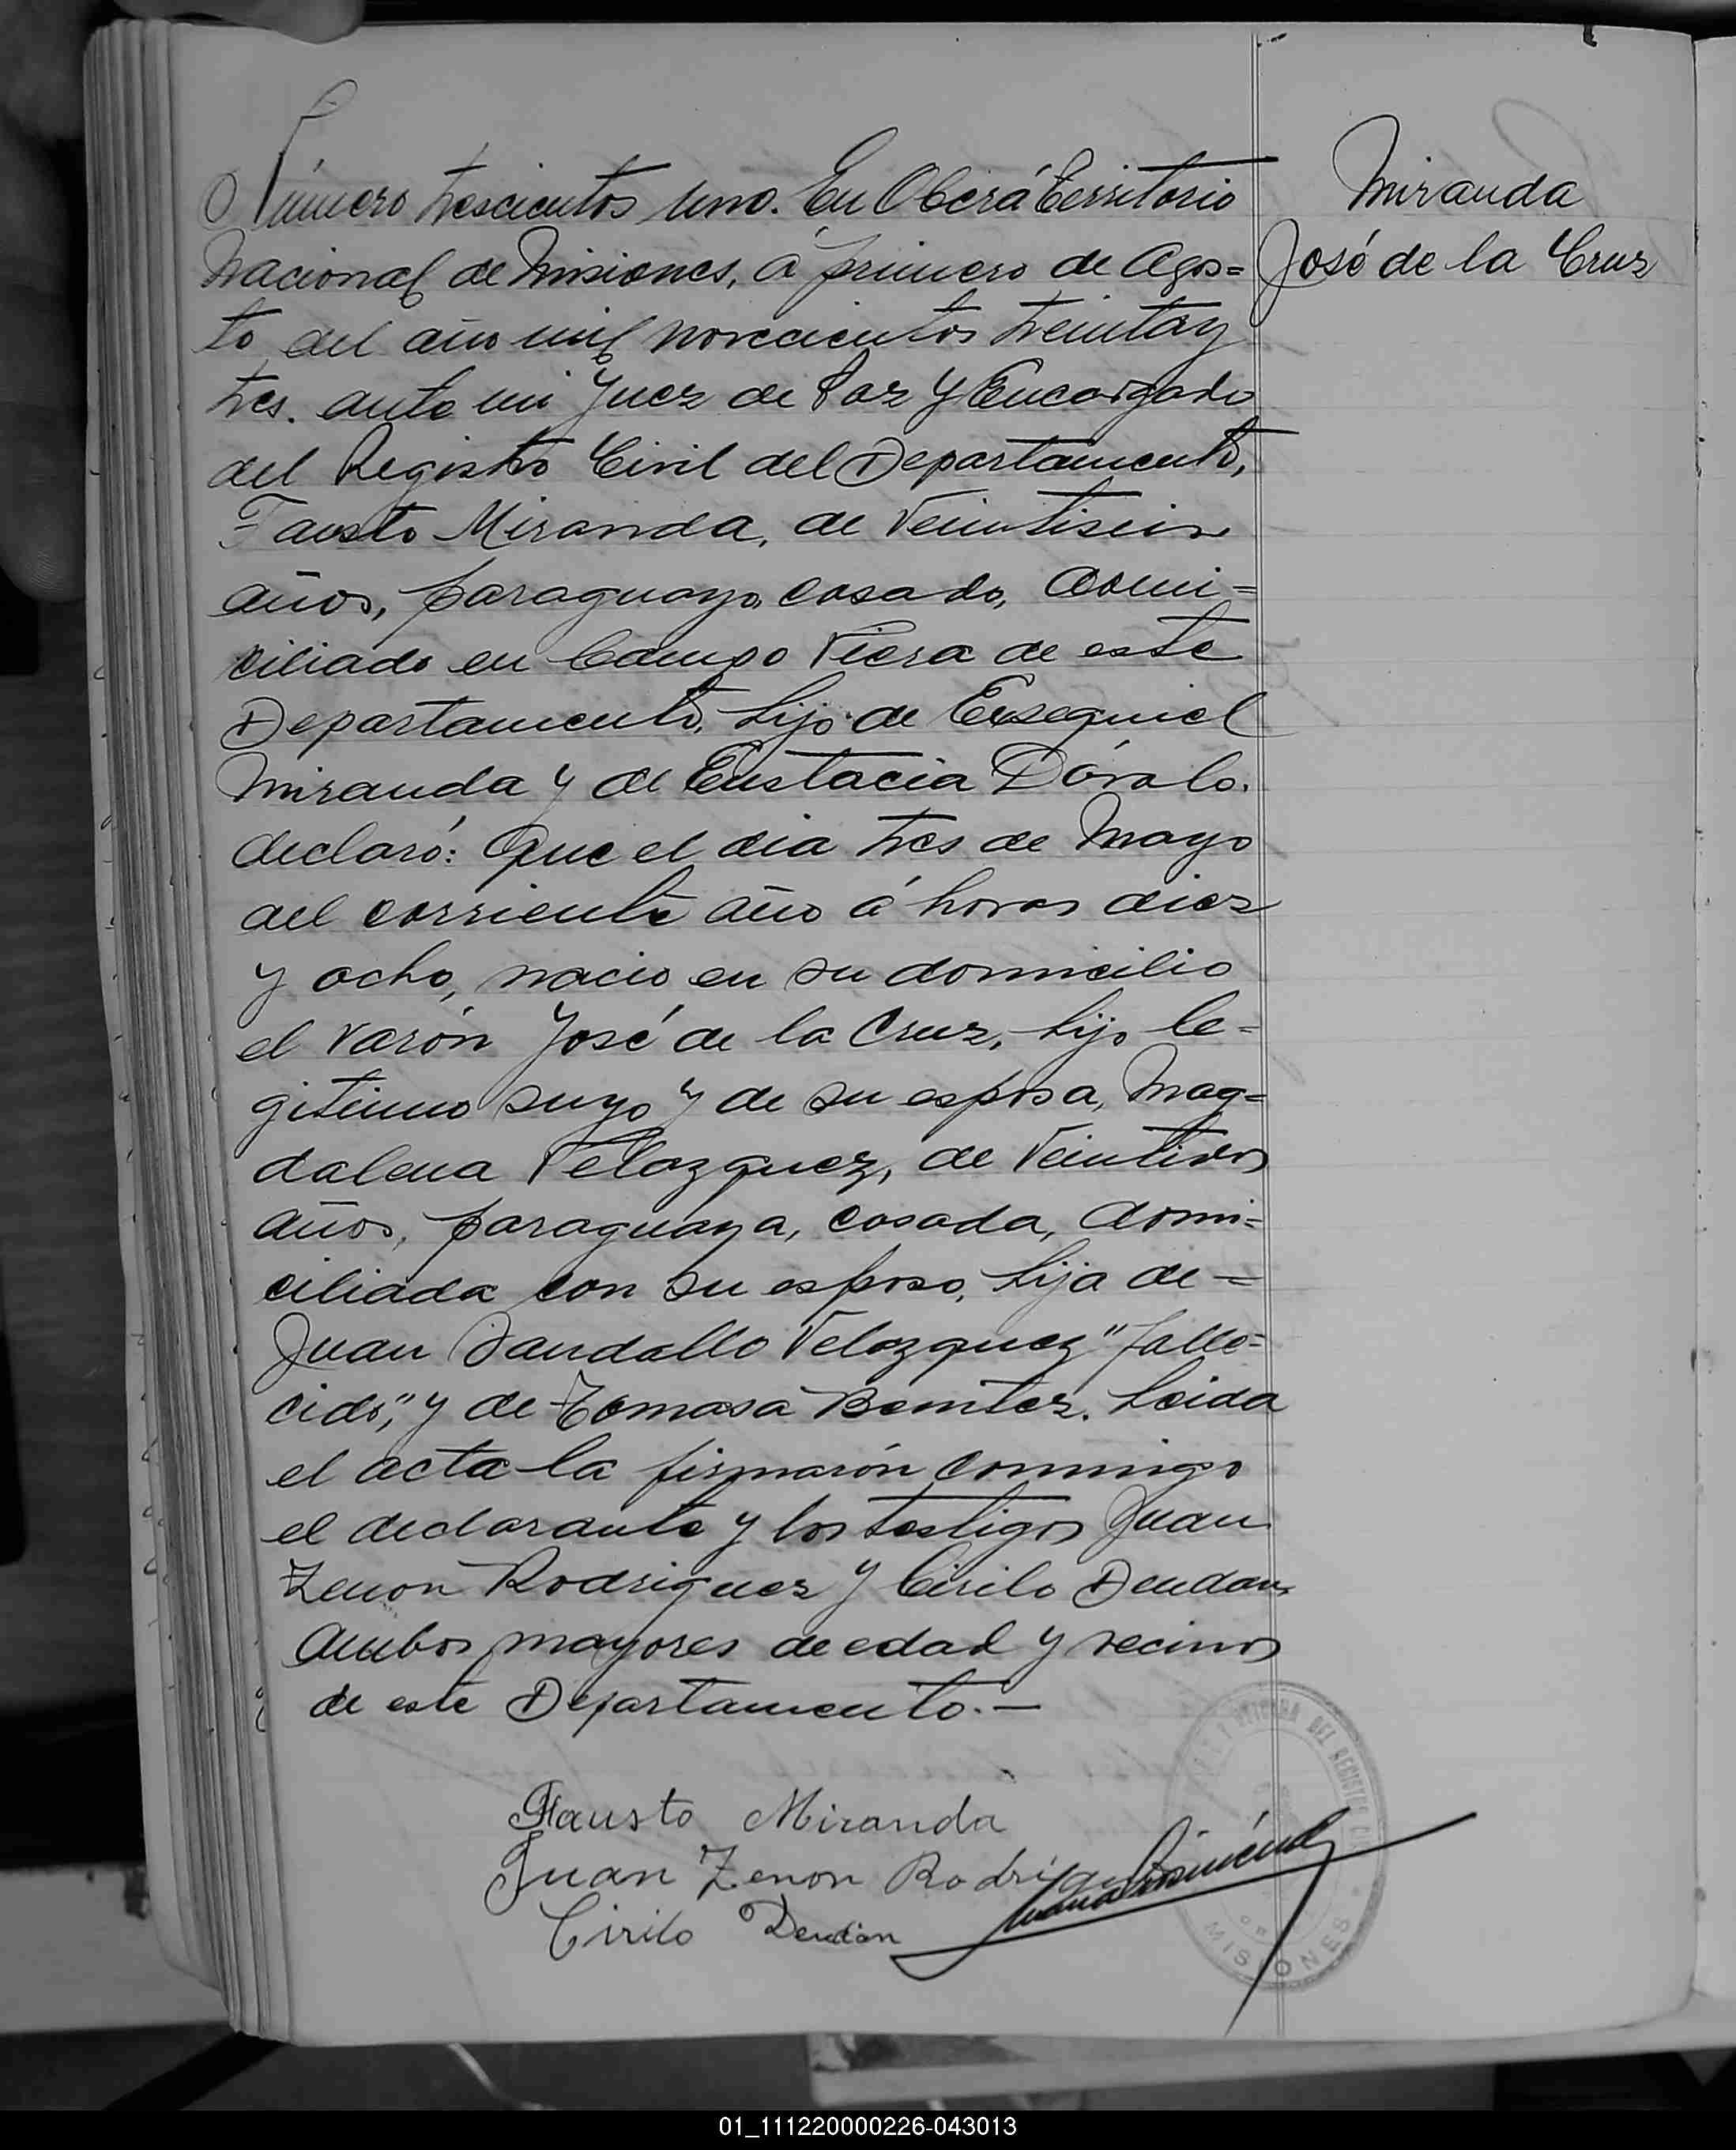 Número trescientos uno. En Oberá Territorio
Nacional de Misiones, á primero de Agos=
to del año mil novecientos treinta y
tres. ante mi Juez de Paz y Encargado
del Registro Civil del Departamento,
Fausto Miranda, de veintiseis
años, paraguayo, casado, domi=
ciliado en Campo Viera de este
Departamento, hijo de Exsequiel
Miranda y de Eustacia Dávalo.
declaró: Que el dia tres de Mayo
del corriente año á horas diez
y ocho, nacio en su domicilio
el varón José de la Cruz, hijo le=
gitimo suyo y de su esposa, Mag=
dalena Velazquez, de veintidos
años, paraguaya, casada, domi=
ciliada con su esposo, hija de=
Juan Sandallo Velazquez "falle=
cido", y de Tomasa Benitez. Leida
el acta la firmarón conmigo
el declarante y los testigos Juan
Zenon Rodriguez y Cirilo Dendan,
Ambos mayores de edad y vecinos
de este Departamento.—
Miranda
José de la Cruz
Fausto Miranda
Juan Zenon Rodrigu
Cirilo Dendan
OFICINA DEL REGISTRO CI
MISIONES
01_111220000226-043013